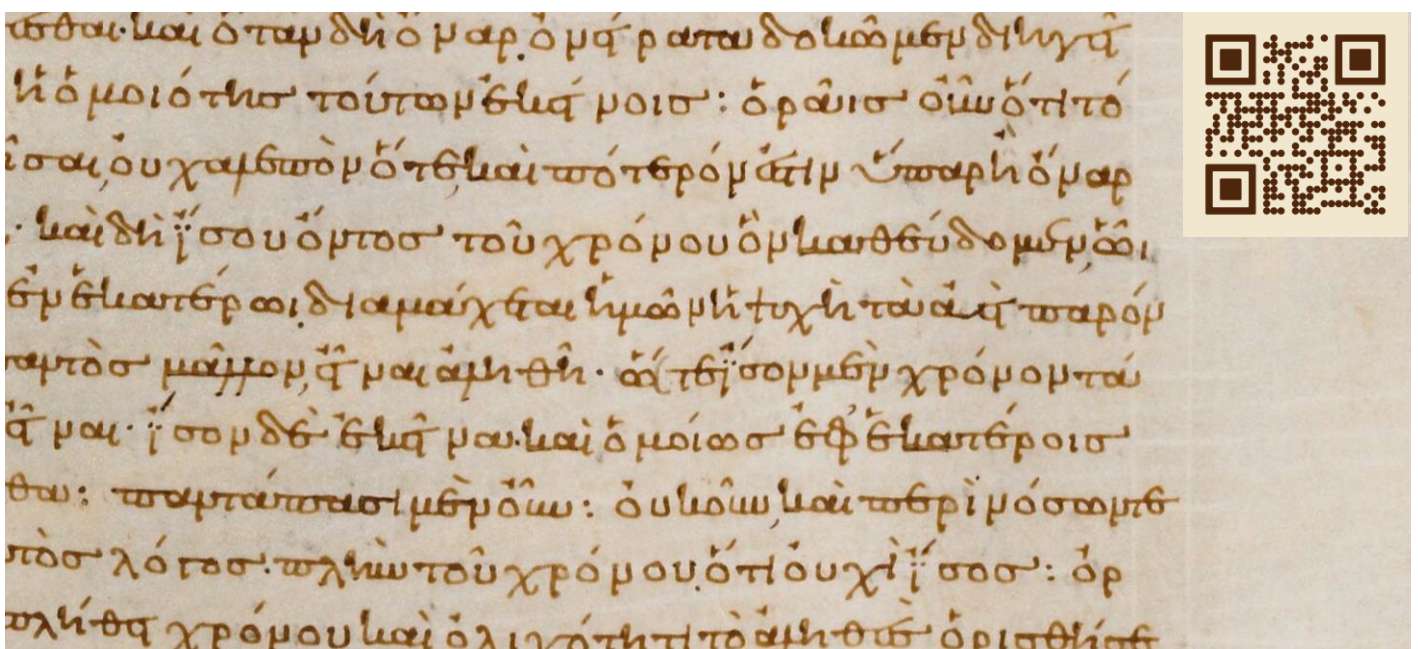 σθαι· καὶ ὅταν δὴ ὄναρ ὀνείρατα δοκῶμεν διηγεῖ
ἡ ὁμοιότης τούτων ἐκείνοις : ὁρᾶις οὖν ὅτι τό
ῖσαι οὐ χαλεπὸν ὅτε καὶ πότερόν ἐστιν ὕπαρ ἢ ὄναρ
· καὶ δὴ ἴσου ὄντος τοῦ χρόνου ὃν καθεύδομεν, ὧι
ἐν ἑκατέρωι διαμάχεται ἡμῶν ἡ ψυχὴ τὰ ἀεὶ παρόν
αντὸς μᾶλλον εἶναι ἀληθῆ· ὥστε ἴσον μὲν χρόνον τά
εἶναι· ἴσον δὲ ἐκεῖνα· καὶ ὁμοίως ἐφ' ἑκατέροις
θα : παντάπασι μὲν οὖν : οὐκοῦν καὶ περὶ νόσων τε
τὸς λόγος· πλὴν τοῦ χρόνου ὅτι οὐχὶ ἴσος : ὀρ
πλήθει χρόνου καὶ ὀλιγότητι τὸ ἀληθὲς ὁρισθήσε